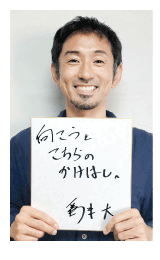 向こうと
こちらの
かけはし。